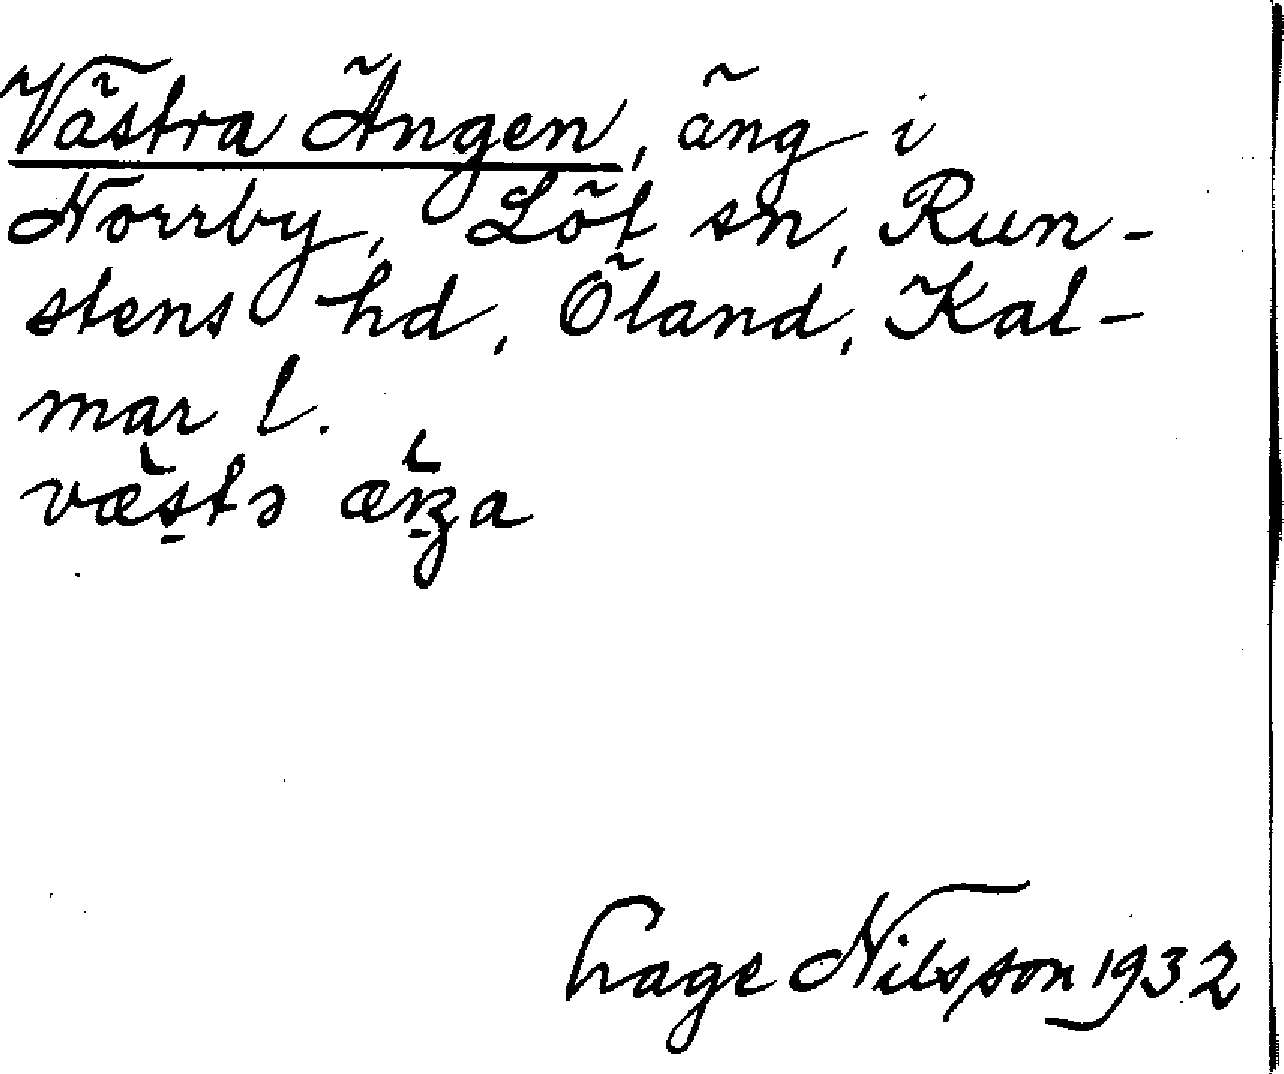 Västra Ängen, äng i
Norrby, Löt sn, Run-
stens hd, Öland, Kal-
mar l.
Lage Nilsson 1932